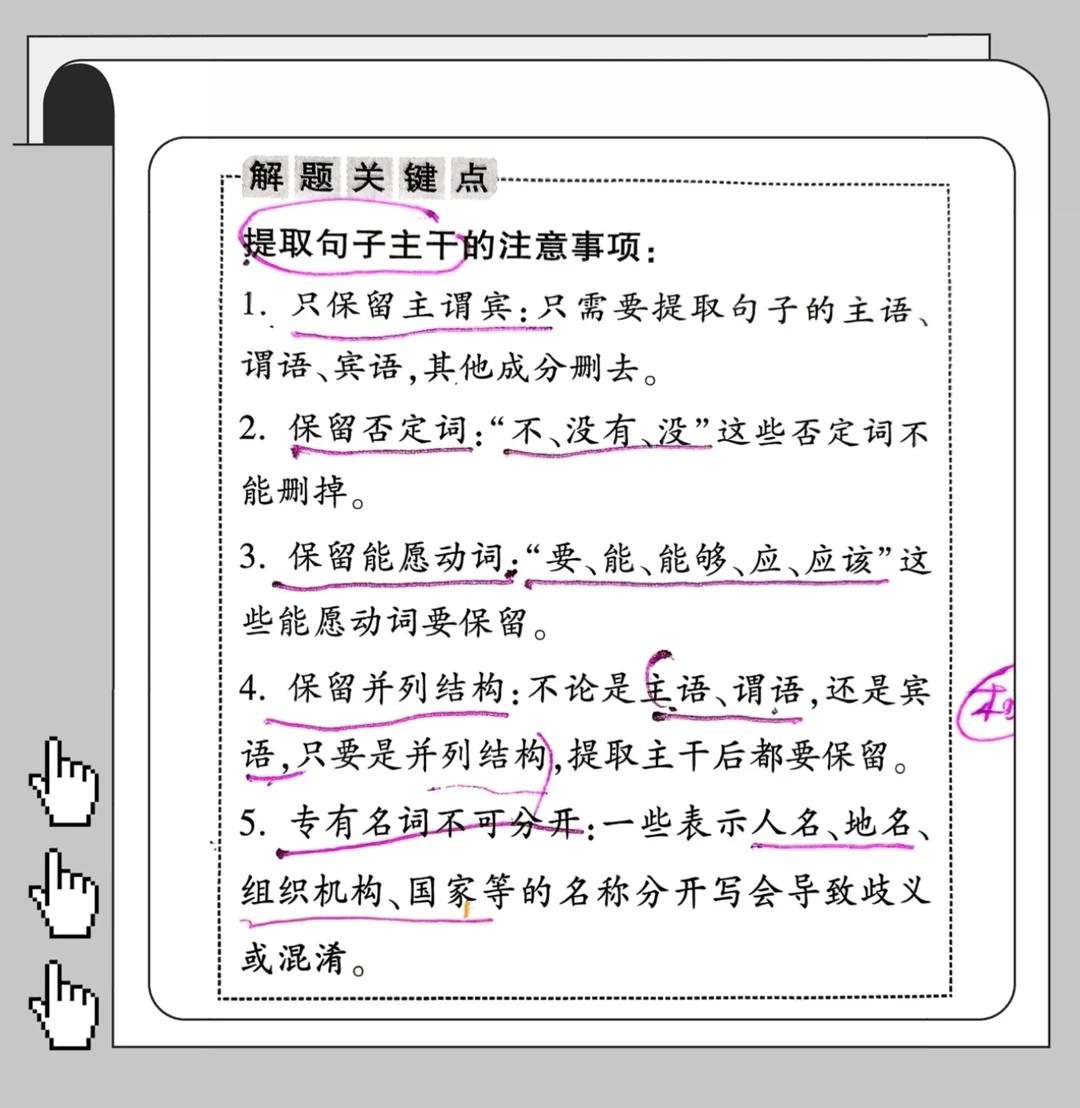 解题关键点
提取句子主干的注意事项：
1. 只保留主谓宾：只需要提取句子的主语、
谓语、宾语，其他成分删去。
2. 保留否定词：“不、没有、没”这些否定词不
能删掉。
3. 保留能愿动词：“要、能、能够、应、应该”这
些能愿动词要保留。
4. 保留并列结构：不论是主语、谓语，还是宾
语，只要是并列结构，提取主干后都要保留。
5. 专有名词不可分开：一些表示人名、地名、
组织机构、国家等的名称分开写会导致歧义
或混淆。